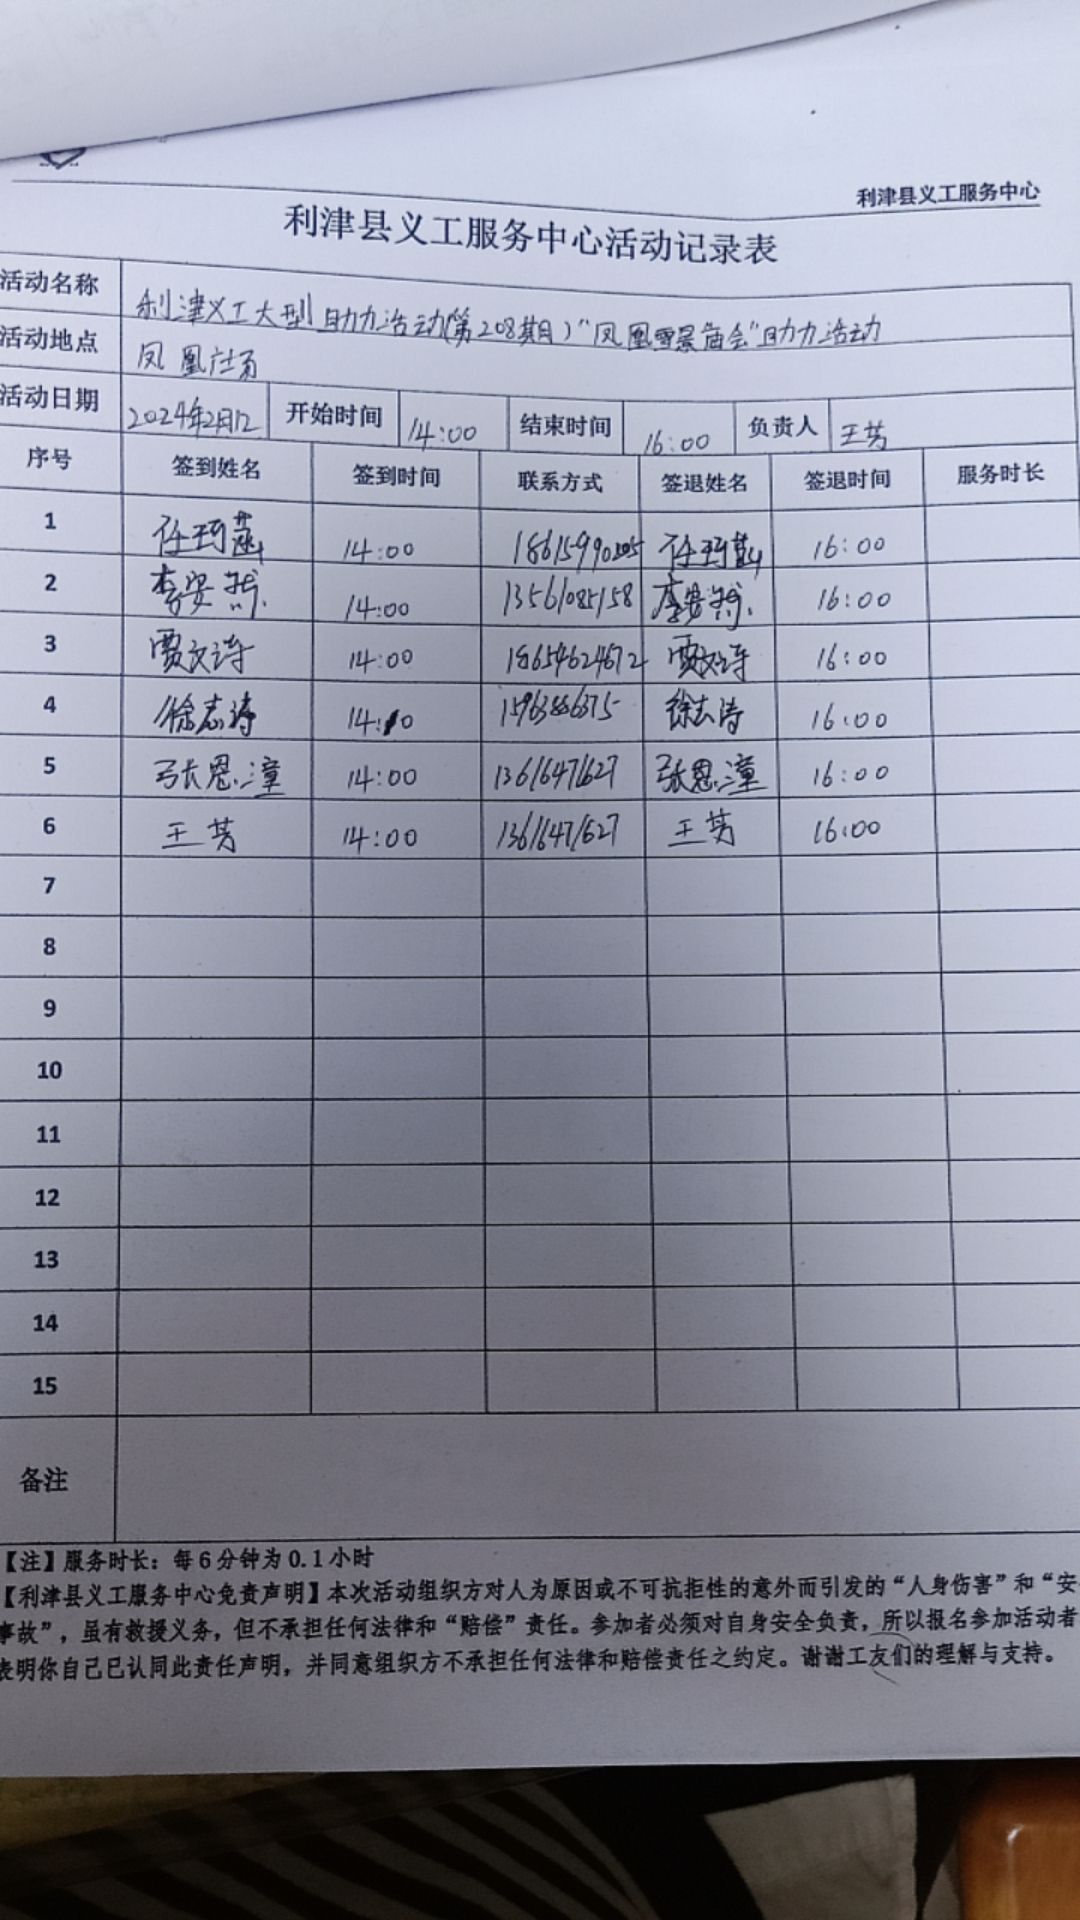 利津县义工服务中心
利津县义工服务中心活动记录表
活动名称 利津义工大型助力活动(第208期)"凤凰雪景庙会"助力活动
活动地点 凤凰广场
活动日期 2024年2月12 开始时间 14:00 结束时间 16:00 负责人 王芳
序号 签到姓名 签到时间 联系方式 签退姓名 签退时间 服务时长
1 任珂 14:00 18615990205 任珂 16:00
2 李安然 14:00 13561085158 李安然 16:00
3 贾文诗 14:00 18654624672 贾文诗 16:00
4 徐志涛 14:10 徐志涛 16:00
5 张恩潼 14:00 13616471627 张恩潼 16:00
6 王芳 14:00 13616471627 王芳 16:00
7
8
9
10
11
12
13
14
15
备注
【注】服务时长：每6分钟为0.1小时
【利津县义工服务中心免责声明】本次活动组织方对人为原因或不可抗拒性的意外而引发的“人身伤害”和“安
事故”，虽有救援义务，但不承担任何法律和“赔偿”责任。参加者必须对自身安全负责，所以报名参加活动者
表明你自己已认同此责任声明，并同意组织方不承担任何法律和赔偿责任之约定。谢谢工友们的理解与支持。